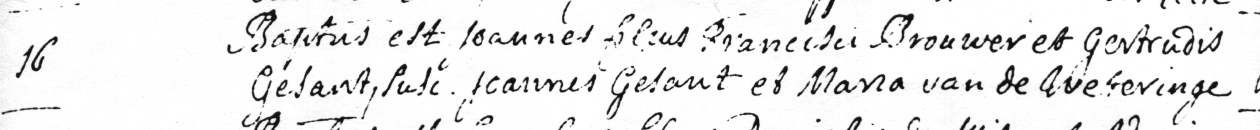 16 Baptus est Joannes filius Francisci Brouwer et Gertrudis
Gesant, susc. Joannes Gesant et Maria van de Weteringe